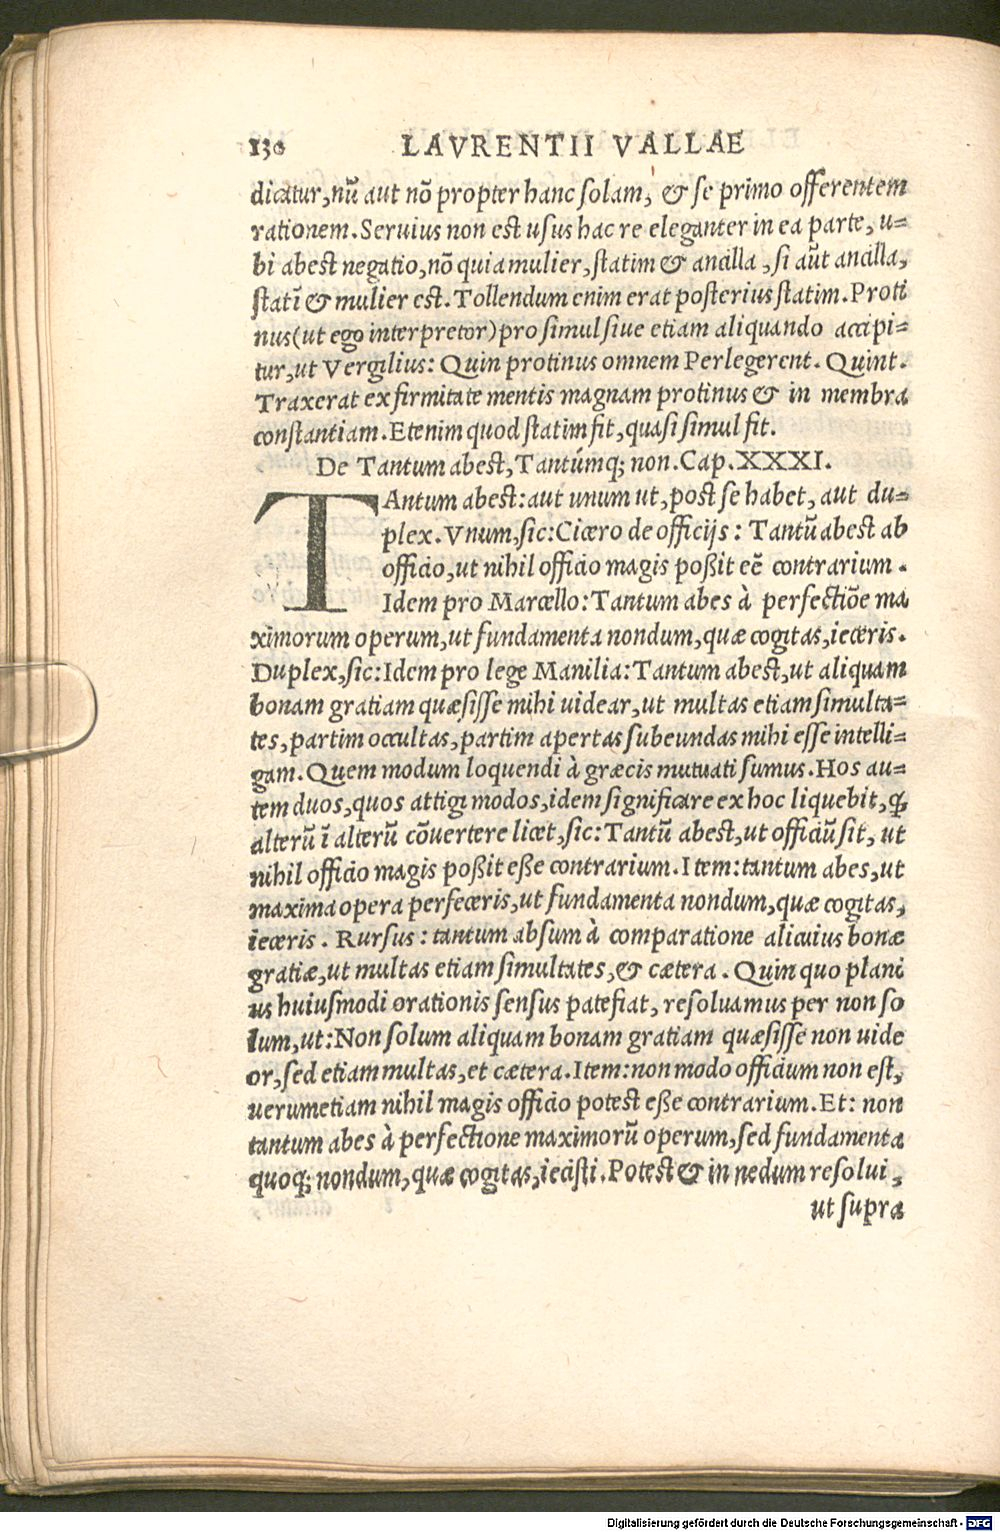 130 LAVRENTII VALLAE
dicatur,nũ aut nõ propter hanc solam, & se primo offerentem
rationem.Seruius non est usus hac re eleganter in ea parte, u=
bi abest negatio,nõ quia mulier,statim & ancilla ,si aũt ancilla,
statĩ & mulier est.Tollendum enim erat posterius statim.Proti
nus(ut ego interpretor)pro simul siue etiam aliquando accipi=
tur,ut Vergilius: Quin protinus omnem Perlegerent. Quint.
Traxerat ex firmitate mentis magnam protinus & in membra
constantiam.Etenim quod statim fit,quasi simul fit.
De Tantum abest,Tantúmq; non.Cap.XXXI.
TAntum abest:aut unum ut,post se habet, aut du=
plex.Vnum,sic:Cicero de officijs: Tantũ abest ab
officio,ut nihil officio magis poßit eẽ contrarium.
Idem pro Marcello:Tantum abes à perfectiõe ma
ximorum operum,ut fundamenta nondum,quæ cogitas,ieceris.
Duplex,sic:Idem pro lege Manilia:Tantum abest,ut aliquam
bonam gratiam quæsisse mihi uidear,ut multas etiam simulta=
tes,partim occultas,partim apertas subeundas mihi esse intelli=
gam.Quem modum loquendi à græcis mutuati sumus.Hos au=
tem duos,quos attigi modos,idem significare ex hoc liquebit,ꝙ
alterũ ĩ alterũ cõuertere licet,sic:Tantũ abest,ut officiũ sit, ut
nihil officio magis poßit eße contrarium.Item:tantum abes,ut
maxima opera perfeceris,ut fundamenta nondum,quæ cogitas,
ieceris. Rursus: tantum absum à comparatione alicuius bonæ
gratiæ,ut multas etiam simultates,& cætera. Quin quo plani
us huiusmodi orationis sensus patefiat, resoluamus per non so
lum,ut:Non solum aliquam bonam gratiam quæsisse non uide
or,sed etiam multas,et cætera.Item:non modo officium non est,
uerumetiam nihil magis officio potest eße contrarium.Et: non
tantum abes à perfectione maximorũ operum,sed fundamenta
quoq; nondum,quæ cogitas,iecisti.Potest & in nedum resolui,
ut supra
Digitalisierung gefördert durch die Deutsche Forschungsgemeinschaft - DFG